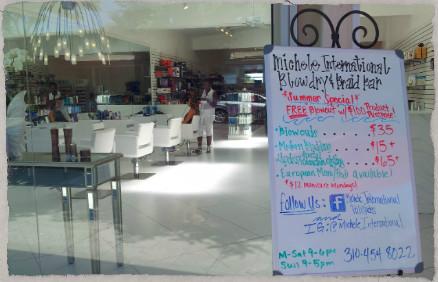 Michele International
Blowdry & Braid Bar
*Summer Special*
FREE Blowout w/ $100 Product
Purchase!
• Blowouts .... $35
• Modern Braiding ... $15+
$65+
• European Mani/Pedi available!
*$12 manicure Mondays!
Follow Us: f Michele International
and
IG: @Michele International
M-Sat 9-6pm 310-454-8022
Sun 9-5pm